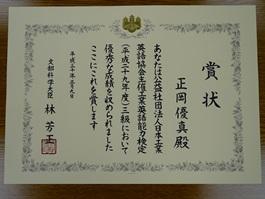 賞状
正岡優真殿
あなたは公益社団法人日本工業
英語協会主催工業英語能力検定
(平成二十九年度)三級において
優秀な成績を収められました
ここにこれを賞します
文部科学大臣
林 芳正